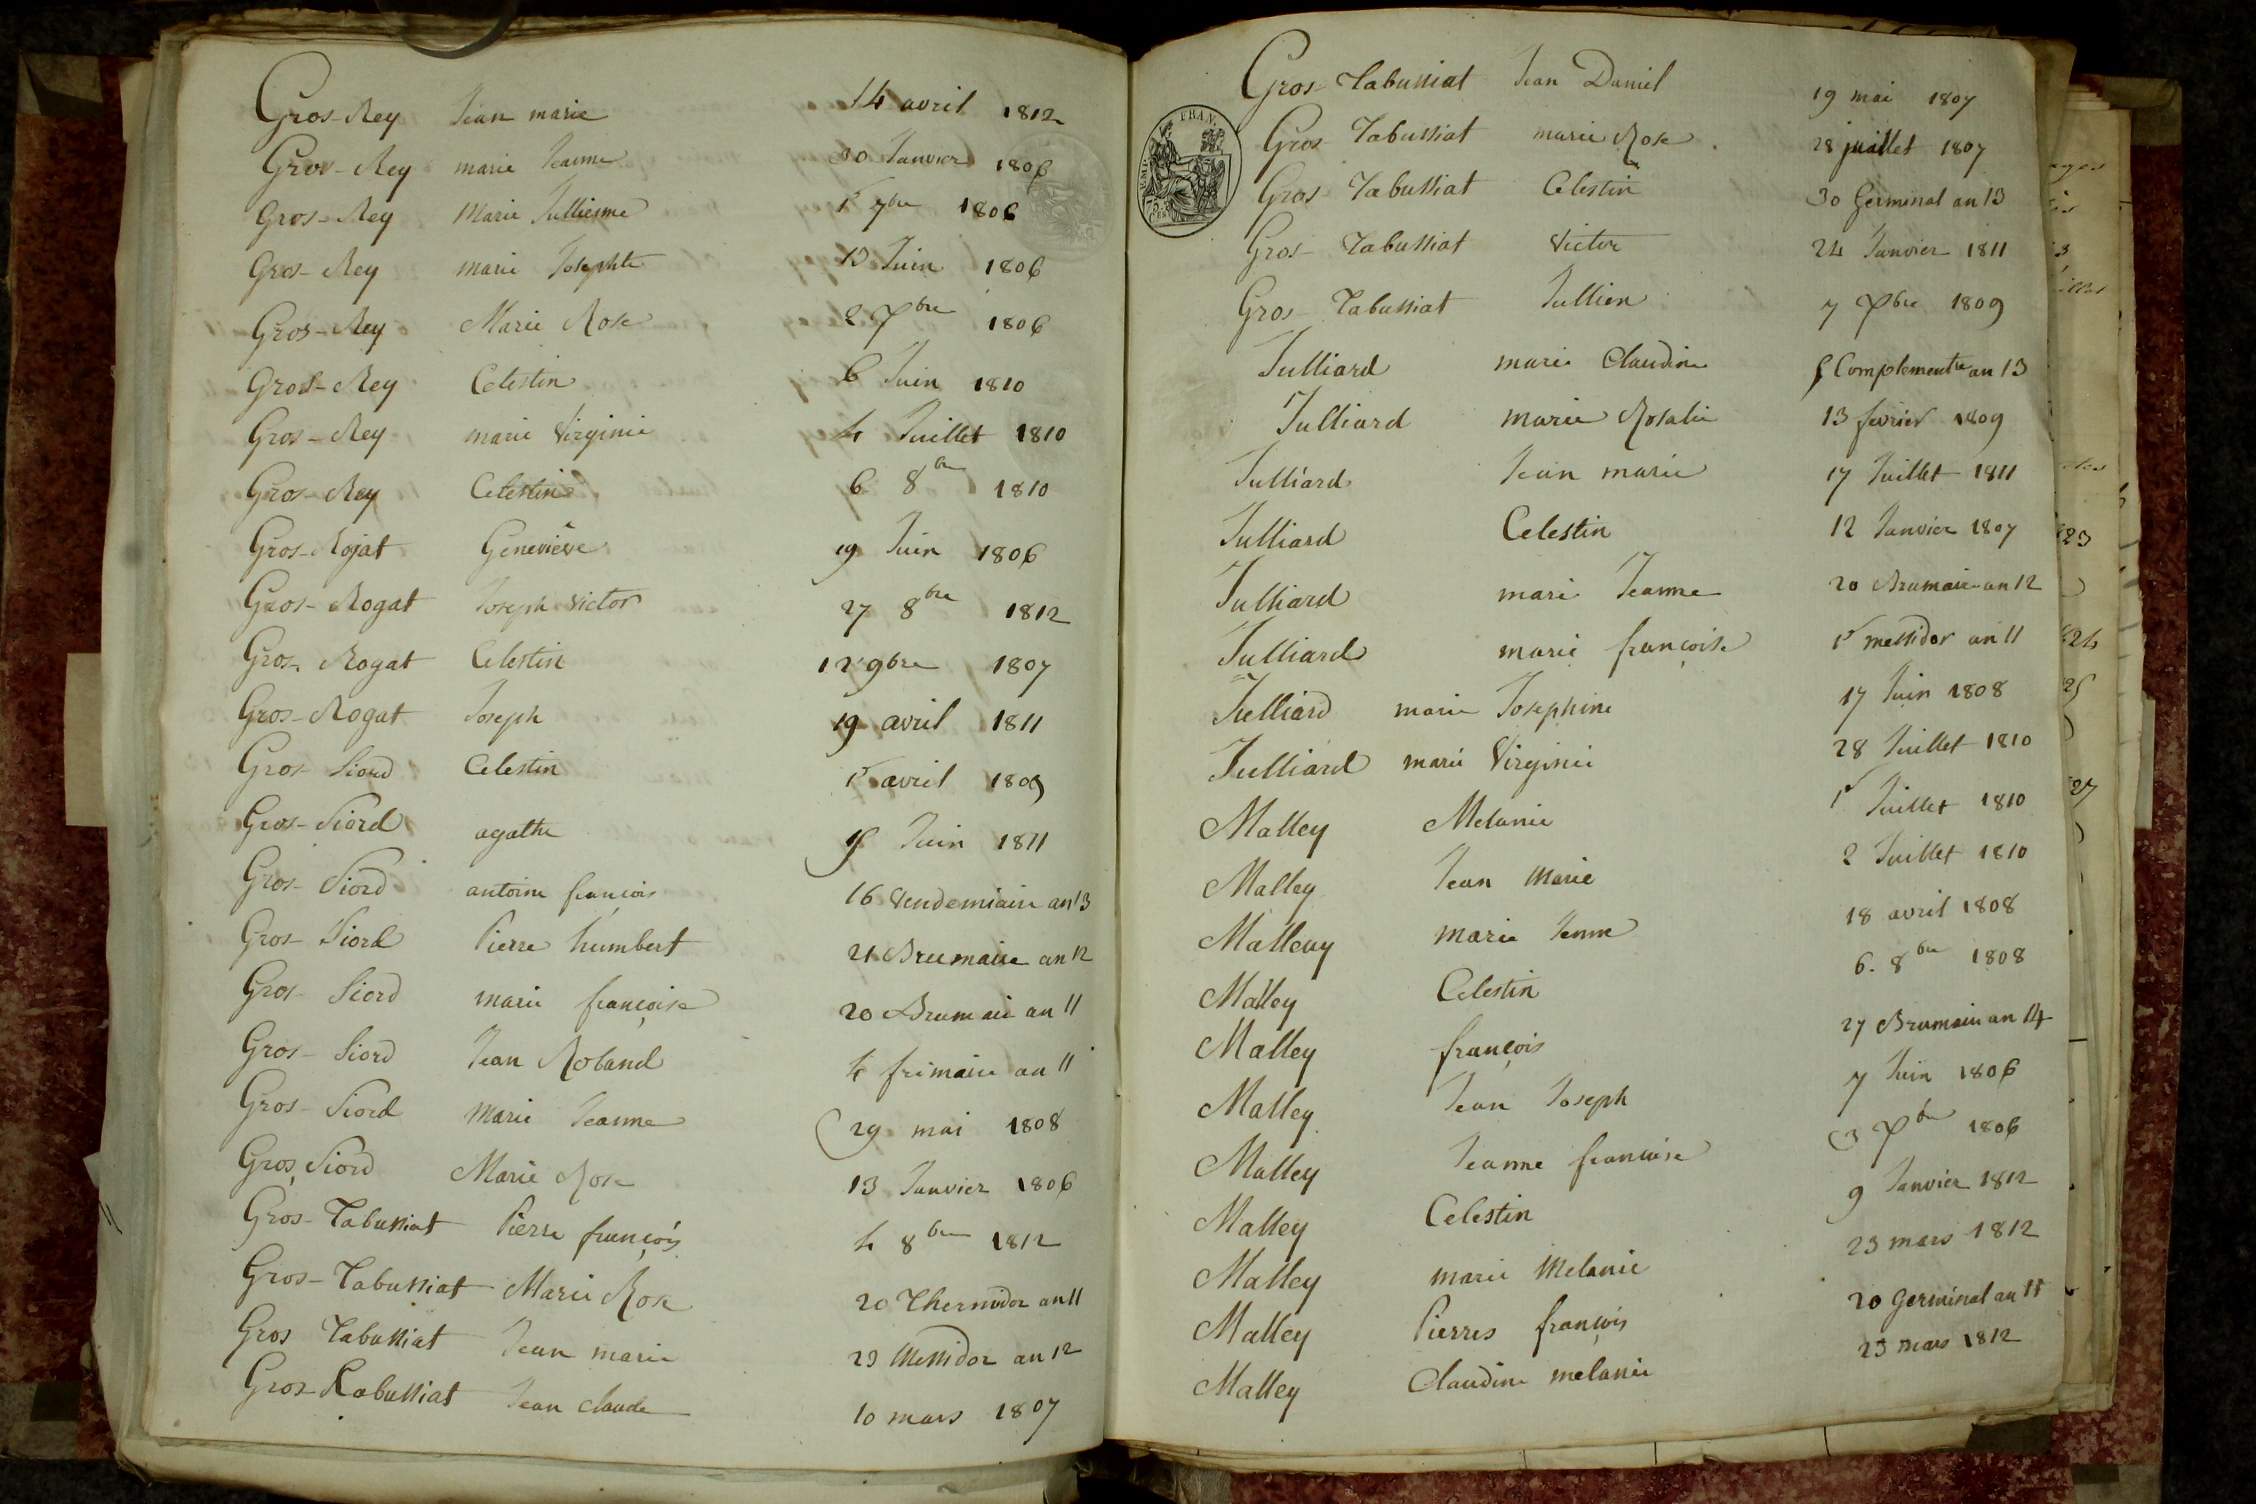 Gros-Rey Jean marie 14 avril 1812
Gros-Rey marie Jeanne 30 Janvier 1806
Gros-Rey Marie Jullienne 1r 7bre 1806
Gros-Rey marie Josephte 13 Juin 1806
Gros-Rey Marie Rose 2 Xbre 1806
Gros-Rey Celestin 6 Juin 1810
Gros-Rey marie Virginie 4 Juillet 1810
Gros-Rey Celestin 6 8bre 1810
Gros-Rojat Geneviève 19 Juin 1806
Gros-Rogat Joseph victor 27 8bre 1812
Gros-Rogat Celestin 12 9bre 1807
Gros-Rogat Joseph 19 avril 1811
Gros-Siord Celestin 1r avril 1809
Gros-Siord agathe Juin 1811
Gros-Siord antoine françois 16 Vendemiaire an 13
Gros-Siord Pierre humbert 21 Brumaire an 12
Gros-Siord marie françoise 20 Brumaire an 11
Gros-Siord Jean Roland 4 frimaire an 11
Gros-Siord Marie Jeanne 29 mai 1808
Gros Siord Marie Rose 13 Janvier 1806
Gros-Tabussiat Pierre françois 4 8bre 1812
Gros-Tabussiat Marie Rose 20 Thermidor an 11
Gros Tabussiat Jean marie 23 Messidor an 12
Gros-Tabussiat Jean claude 10 mars 1807
Gros-Tabussiat Jean Daniel 19 mai 1807
EMP. FRAN.
Gros Tabussiat marie Rose 28 juillet 1807
Gros Tabussiat Celestin 30 Germinal an 13
Gros-Tabussiat Victor 24 Janvier 1811
Gros-Tabussiat Jullien 7 Xbre 1809
Julliard marie Claudine 5 Complementre an 13
Julliard marie Rosalie 13 fevrier 1809
Julliard Jean marie 17 Juillet 1811
Julliard Celestin 12 Janvier 1807
Julliard marie Jeanne 20 Brumaire an 12
Julliard marie françoise 1r messidor an 11
Julliard marie Josephine 17 Juin 1808
Julliard marie Virginie 28 Juillet 1810
Malley Melanie 1r Juillet 1810
Malley Jean Marie 2 Juillet 1810
Malleuy marie Jenne 18 avril 1808
Malley Celestin 6. 8bre 1808
Malley françois 27 Brumaire an 14
Malley Jean Joseph 7 Juin 1806
Malley Jeanne francoise 3 Xbre 1806
Malley Celestin 9 Janvier 1812
Malley marie Melanie 23 mars 1812
Malley Pierres françois 20 germinal an 11
Malley Claudine melanie 23 mars 1812